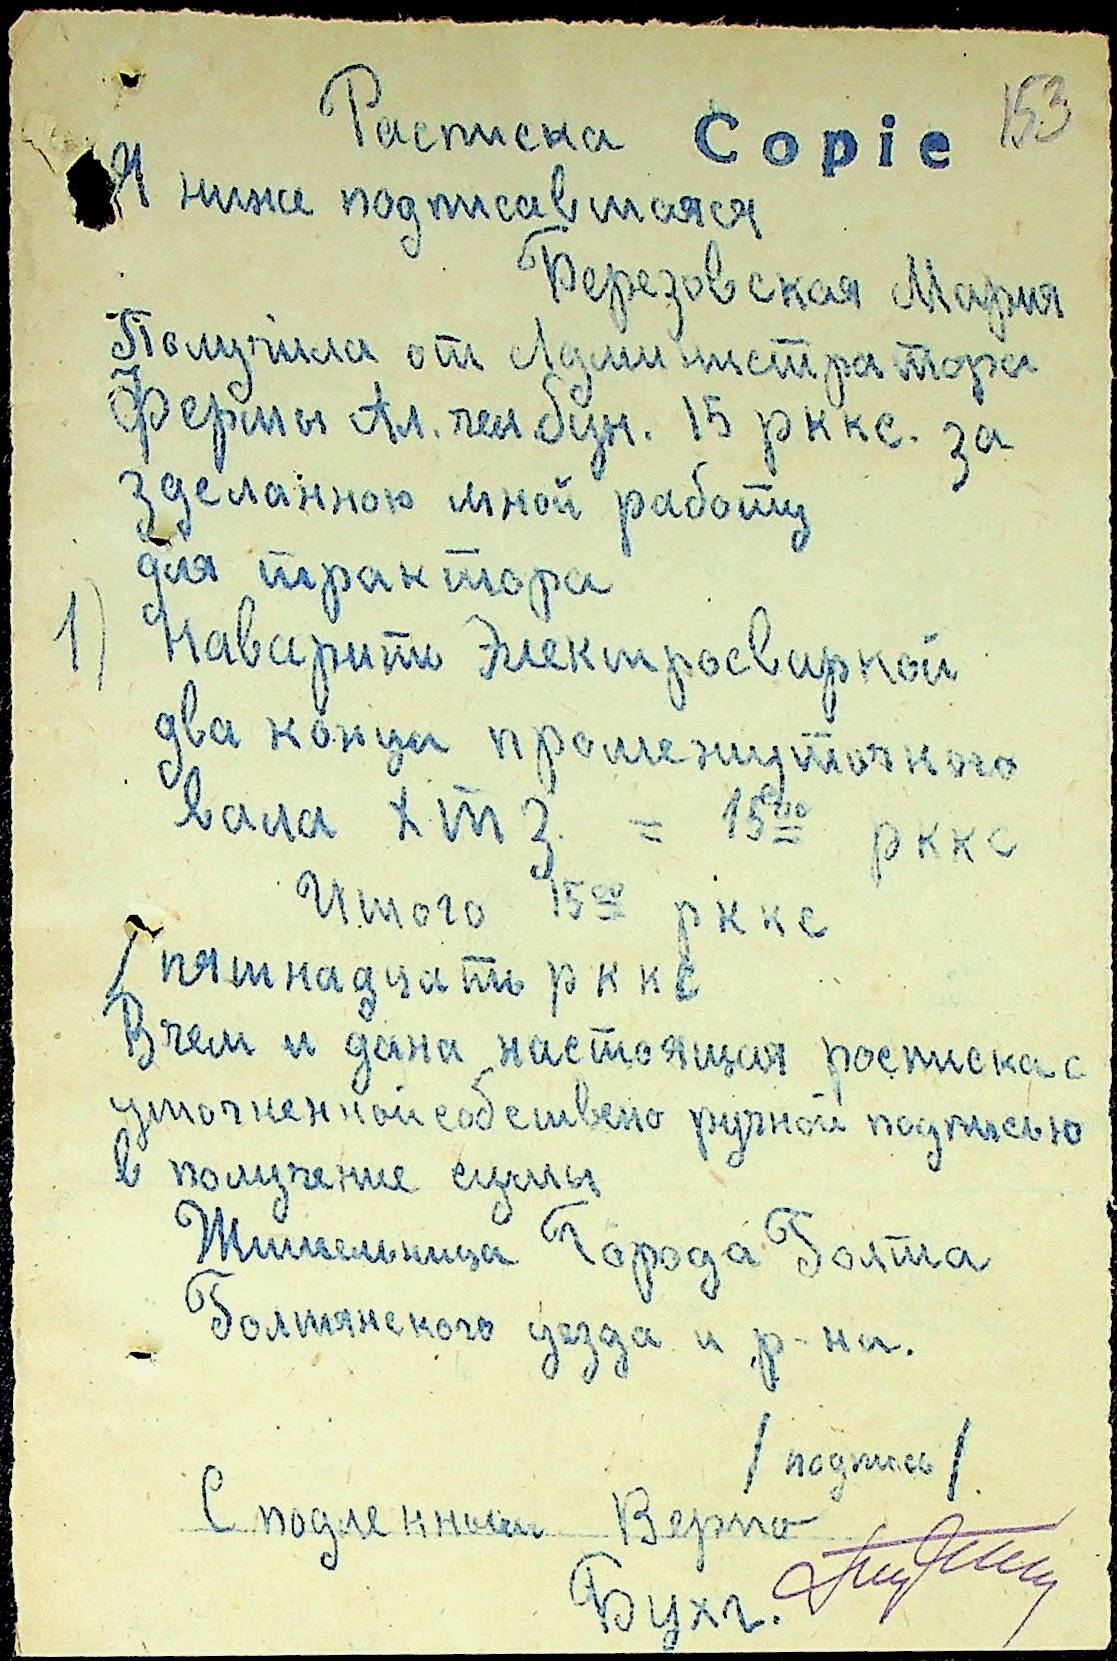 Расписка Copie 153
Я ниже подписавшаяся
Березовская Мария
Получила от Администратора
Фермы Ал. 15 рккс. за
зделанною мной работу
для трактора
1) Наварить Электросваркой
два конца промежуточного
вала ХТЗ. = 15 00 рккс
Итого 15 00 рккс
/ пятнадцать рккс
В чем и дана настоящая росписка с
уточненной собствено ручной подписью
в получение сумы
Жительница Города Болта
Болтянского уезда и р-на.
/ подпись /
С подленным Верно
Бухг.